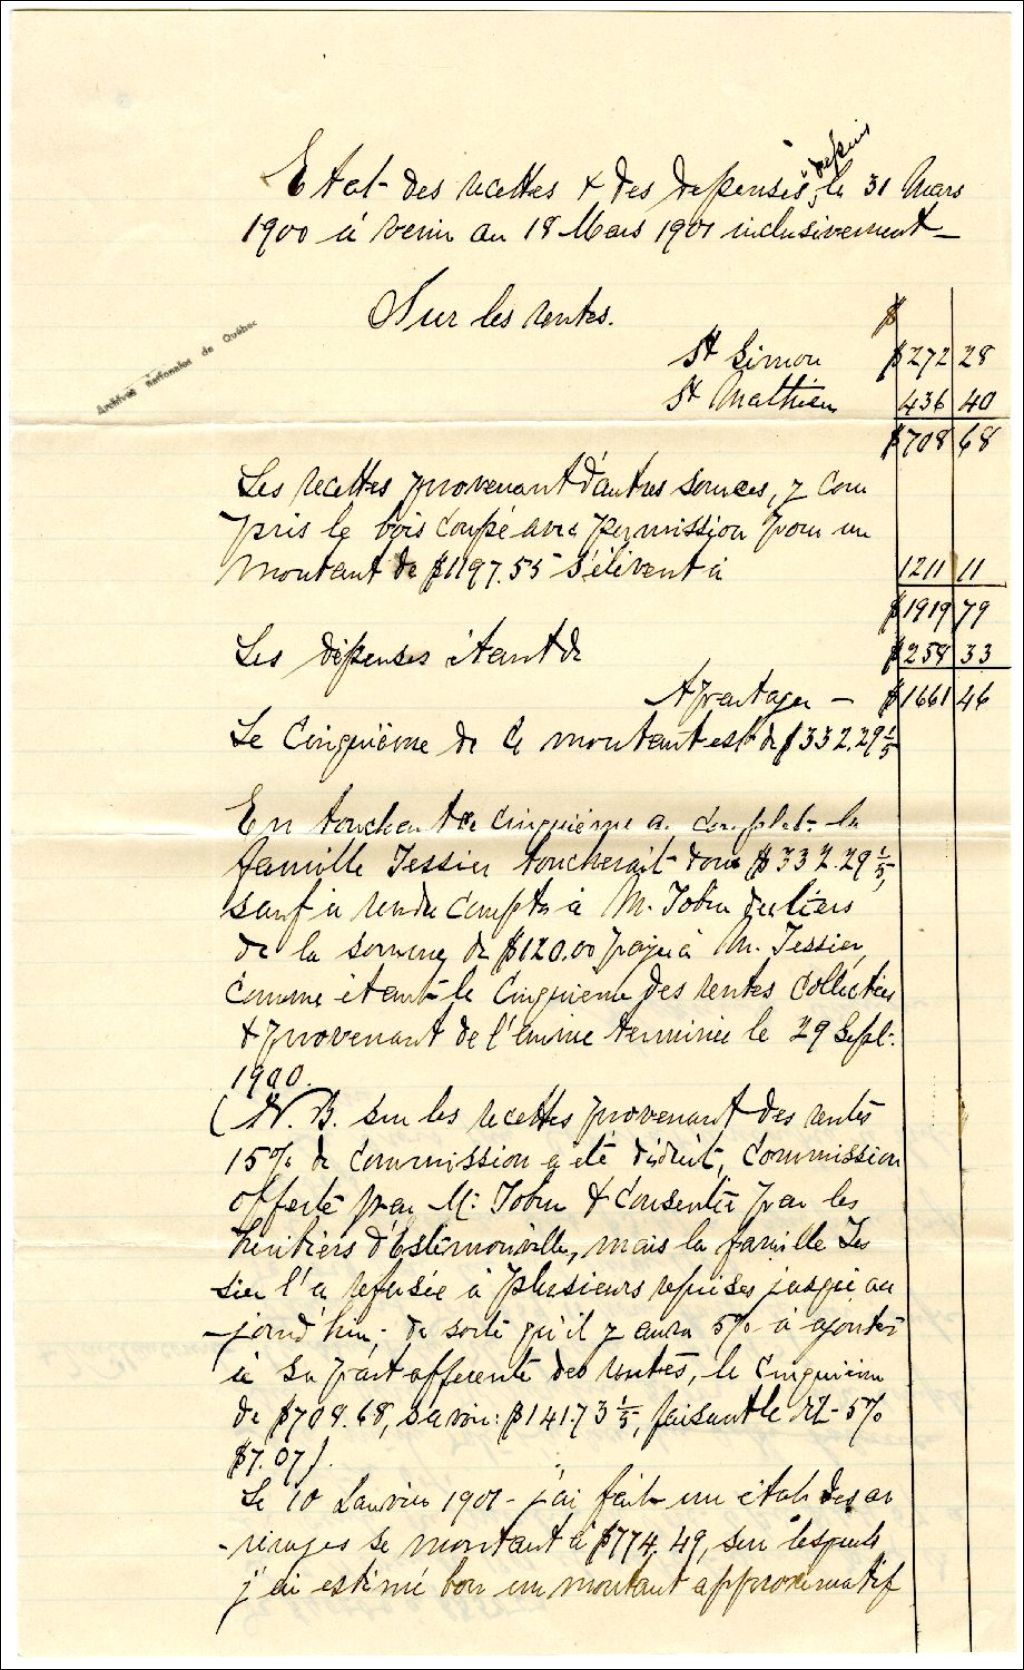 depuis
Etat des recettes & des depenses, le 31 Mars
1900 à venir au 18 Mars 1901 inclusivement
Sur les rentes.
$
St Simon $272 28
St Mathieu 436 40
$708 68
Les recettes provenant d'autres sources, y com
pris le bois coupé avec permission pour un
montant de $1197.55 s'élèvent à 1211 11
$1919 79
Les dépenses étant de $258 33
A partager — $1661 46
Le Cinquième de ce montant est de $332.29 1/5
En touchant ce cinquième au complet la
famille Tessier toucherait donc $332.29 1/5,
sauf à rendre compte à M. Tobin du tiers
de la somme de $120.00 payée à M. Tessier,
comme étant le Cinquieme des rentes Collectées
& provenant de l'année terminée le 29 Sept.
1900.
(N.B. sur les recettes provenant des rentes
15% de commission a été déduit, Commission
offerte par M. Tobin & consentie par les
héritiers d'Estimonville, mais la famille Tes
sier l'a refusée à plusieurs reprises jusqu'au
-jourd'hui - de sorte qu'il y aura 5% à ajouter
à sa part afferente des rentes, le Cinquième
de $708.68, savoir: $141.73 1/5, faisant le 5%
$7.07).
Le 10 Janvier 1901 - j'ai fait un état des ar
-rérages se montant à $774.49, sur lesquels
j'ai estimé bon un montant approximatif
Archives Nationales de Québec